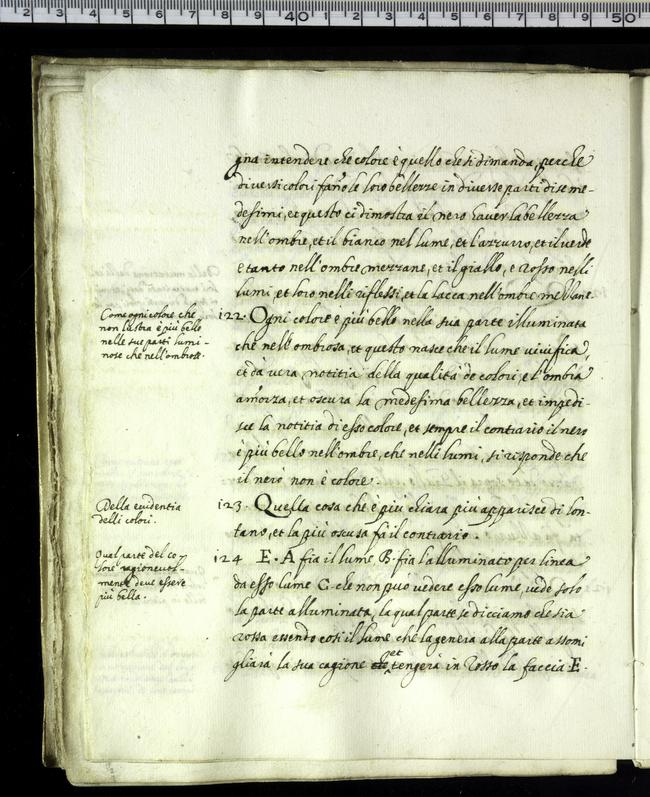 gna intendere che colore è quello che si dimanda, perche
diversi colori fañole loro bellezze in diverse parti di se me-
desimi, et questo ci dimostra il nero haver la bellezza
nell'ombre, et il bianco nel lume, et l'azzurro, et il verde
e tanto nell'ombre mezzane, et il giallo, e rosso nelli
lumi, et loro nelli riflessi, et la lacca nell'ombre mezzane.
Come ogni colore che
non lustra è più bello
nelle sue parti lumi-
nose che nell'ombrose.
122. Ogni colore è più bello nella sua parte illuminata
che nell'ombrosa, et questo nasce che il lume vivifica,
et dà vera notitia della qualità de colori, e l'ombra
amorza, et oscura la medesima bellezza, et impedi-
sce la notitia di esso colore, et sempre il contrario il nero
è più bello nell'ombre, che nelli lumi, si risponde che
il nero non è colore.
Della evidentia
delli colori.
123. Quella cosa che è più chiara più apparisce di lon-
tano, et la più oscura fà il contrario.
Qual parte del co-
lore ragionevol-
mente deve essere
più bella.
124 E. A fia il lume B. fia l'alluminato per linea
da esso lume C. che non può vedere esso lume, vede solo
la parte alluminata, la qual parte se dicciamo che sia
rossa essendo così il lume che la genera alla parte assomi
gliarà la sua cagione et tengerà in rosso la faccia E.
40
50